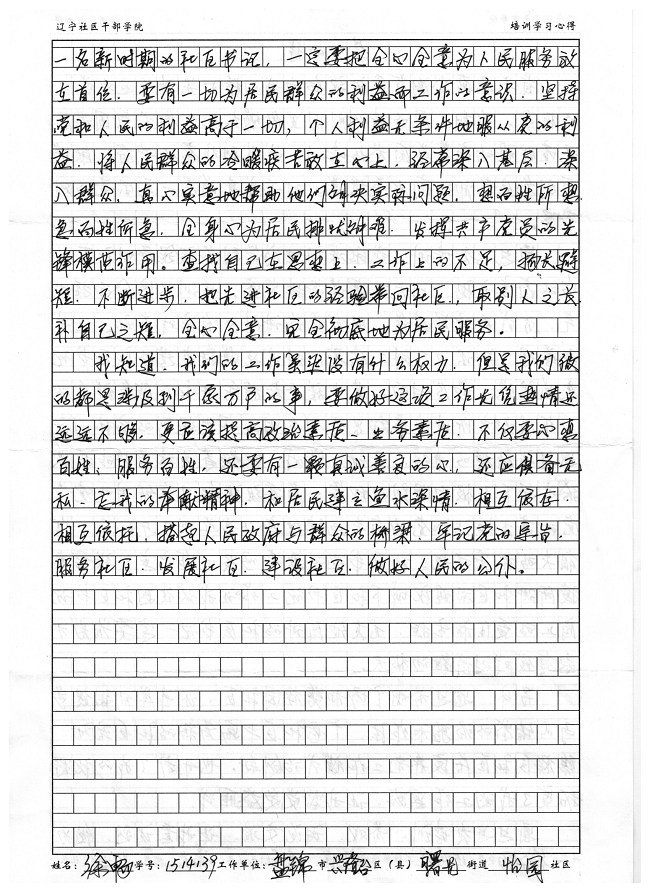 辽宁社区干部学院 培训学习心得
一名新时期的社区书记，一定要把全心全意为人民服务放
在首位．要有一切为居民群众的利益而工作的意识．坚持
党和人民的利益高于一切，个人利益无条件地服从党的利
益．将人民群众的冷暖疾苦放在心上，经常深入基层．深
入群众，真心实意地帮助他们解决实际问题，想百性所想．
急百性所急．全身心为居民排忧解难．发挥共产党员的先
锋模范作用。查找自己在思想上．工作上的不足，扬长避
短．不断进步，把先进社区的经验带回社区，取别人之长
补自己之短，全心全意．完全彻底地为居民服务。
我知道．我们的工作算没有什么权力．但是我们做
的都是涉及到千家万户的事，要做好这项工作光凭热情还
远远不够，更应该提高政治素质、业务素质．不仅要心想
百姓、服务百姓，还要有一颗真诚善良的心，还应具备无
私、忘我的奉献精神．和居民建立鱼水深情．相互依存．
相互依托，搭起人民政府与群众的桥梁．牢记党的宗旨．
服务社区．发展社区．建设社区．做好人民的公仆。
姓名：徐畅 学号：1514139 工作单位：盘锦市兴隆台区（县）曙光街道怡园社区